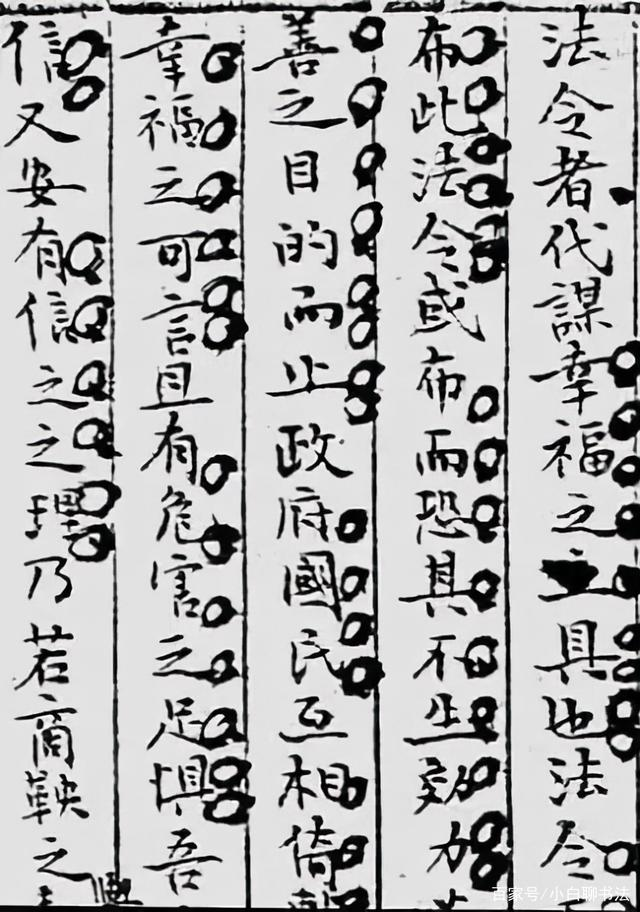 法令者代謀幸福之具也法令
布此法令或布而恐其不生効力
善之目的而止政府國民互相倚
幸福之可言且有危害之足惧吾
信又安有信之之理乃若商鞅之
百家号/小白聊书法